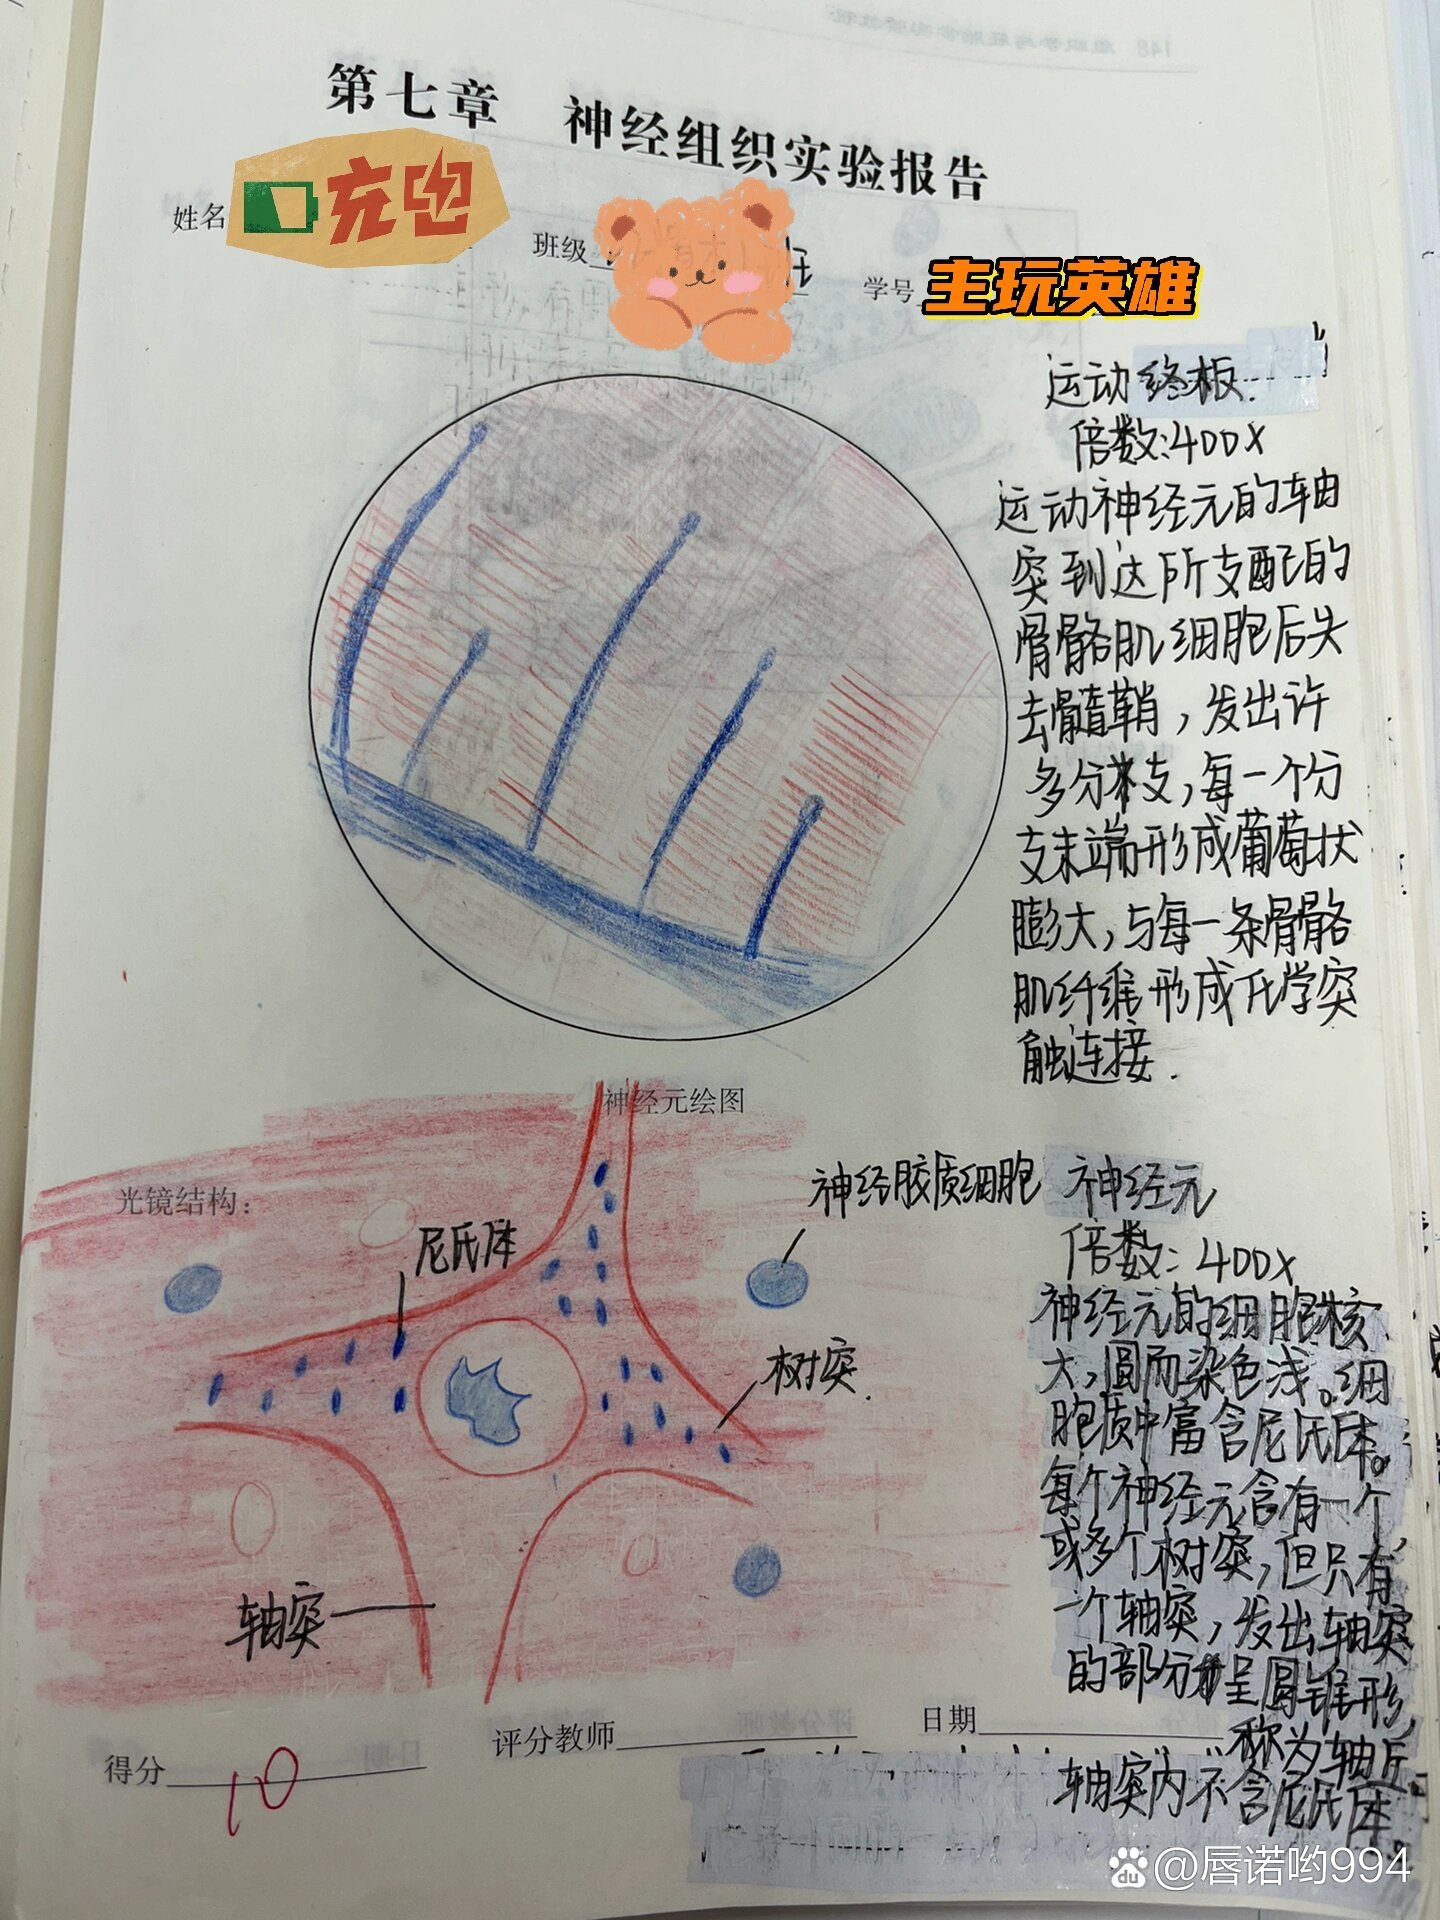 第七章 神经组织实验报告
姓名 充电 班级 学号 主玩英雄
运动终板.
倍数:400X
运动神经元的轴
突到达所支配的
骨骼肌细胞后失
去髓鞘，发出许
多分支,每一个分
支末端形成葡萄状
膨大,与每一条骨骼
肌纤维形成化学突
触连接.
神经元绘图
光镜结构：
尼氏体
神经胶质细胞
树突.
轴突
神经元
倍数：400X
神经元的细胞核
大,圆而染色浅。细
胞质中富含尼氏体。
每个神经元含有一个
或多个树突,但只有
一个轴突,发出轴突
的部分呈圆锥形,
称为轴丘。
轴突内不含尼氏体。
得分 10 评分教师 日期
du @唇诺哟994